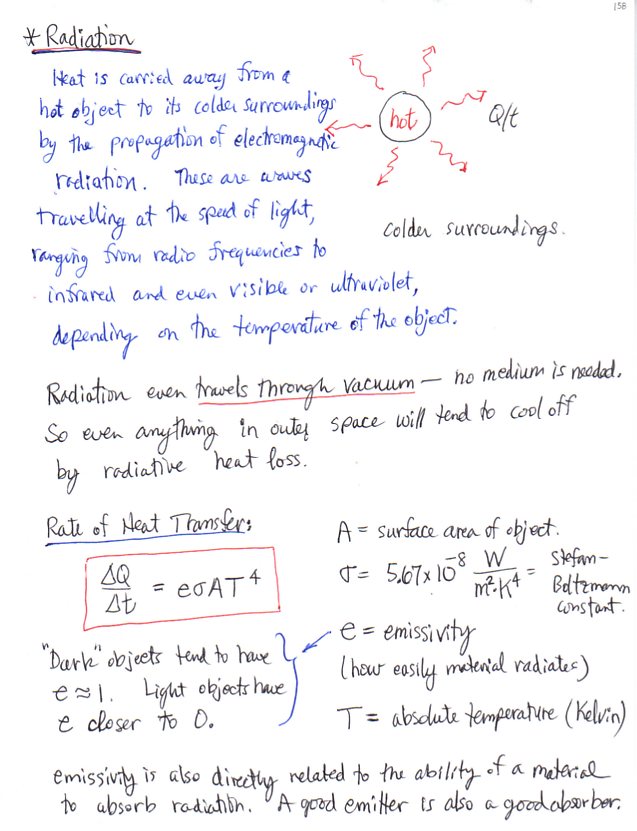 158
* Radiation
Heat is carried away from a
hot object to its colder surroundings
by the propagation of electromagnetic
radiation. These are waves
travelling at the speed of light,
ranging from radio frequencies to
infrared and even visible or ultraviolet,
depending on the temperature of the object.
hot
Q/t
colder surroundings.
Radiation even travels through vacuum — no medium is needed.
So even anything in outer space will tend to cool off
by radiative heat loss.
Rate of Heat Transfer:
ΔQ/Δt = eσAT⁴
"Dark" objects tend to have
e ≈ 1. Light objects have
e closer to 0.
A = surface area of object.
σ = 5.67 × 10⁻⁸ W/m²·K⁴ = Stefan-
Boltzmann
constant.
e = emissivity
(how easily material radiates)
T = absolute temperature (Kelvin)
emissivity is also directly related to the ability of a material
to absorb radiation. A good emitter is also a good absorber.